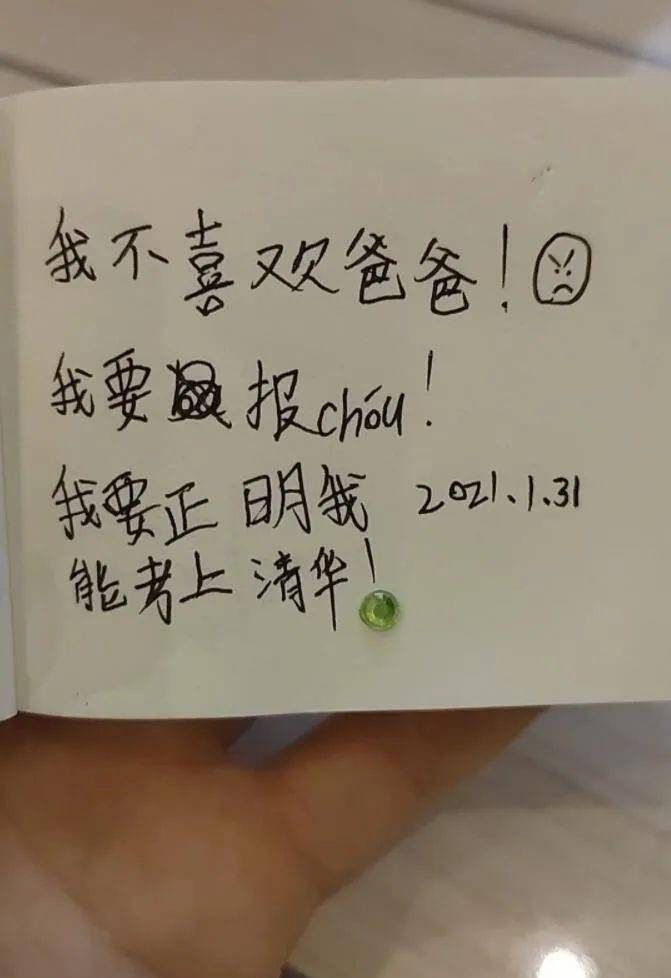 我不喜欢爸爸!
我要报chóu!
我要正明我 2021.1.31
能考上清华!